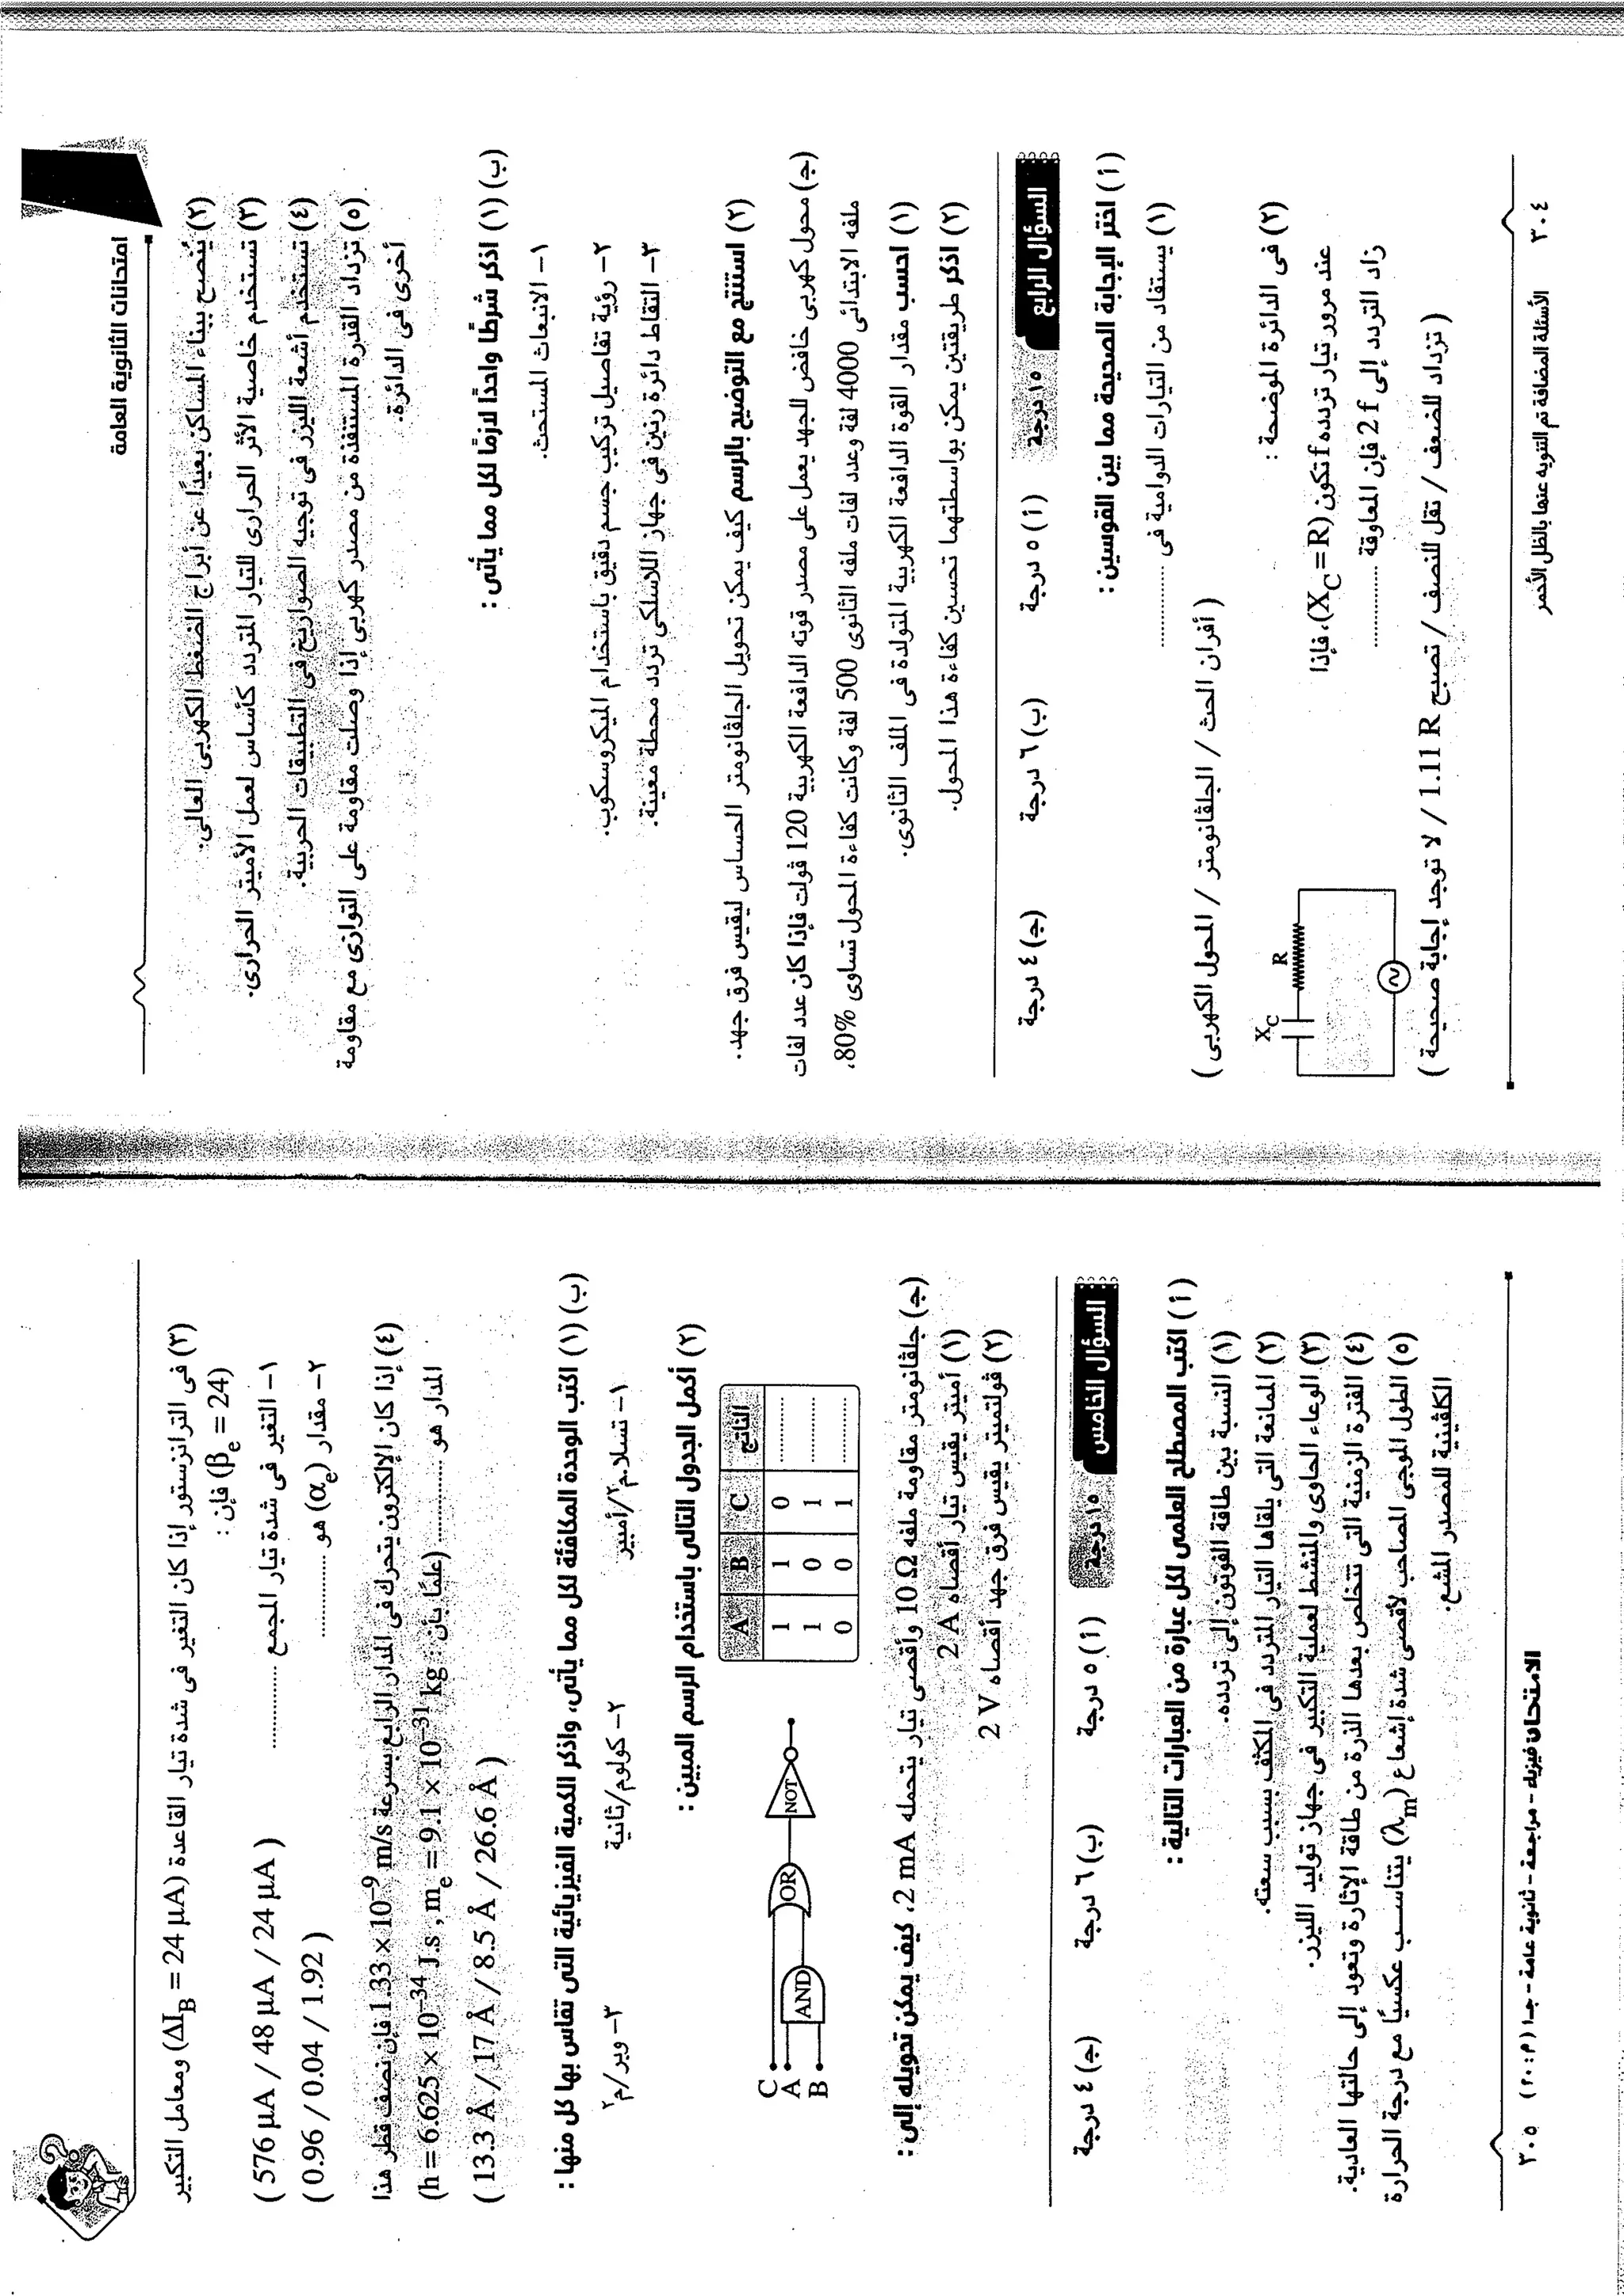 امتحانات الثانوية العامة
(٢) يُنصح ببناء المساكن بعيدًا عن أبراج الضغط الكهربى العالى.
(٣) تستخدم خاصية الأثر الحرارى للتيار المتردد كأساس لعمل الأميتر الحرارى.
(٤) تستخدم أشعة الليزر فى توجيه الصواريخ فى التطبيقات الحربية.
(٥) تزداد القدرة المستنفذة من مصدر كهربى إذا وصلت مقاومة على التوازى مع مقاومة
أخرى فى الدائرة.
(ب) (١) اذكر شرطًا واحدًا لازمًا لكل مما يأتى :
١- الانبعاث المستحث.
٢- رؤية تفاصيل تركيب جسم دقيق باستخدام الميكروسكوب.
٣- التقاط دائرة رنين فى جهاز اللاسلكى تردد محطة معينة.
(٢) استنتج مع التوضيح بالرسم كيف يمكن تحويل الجلڤانومتر الحساس ليقيس فرق جهد.
(جـ) محول كهربى خافض للجهد يعمل على مصدر قوته الدافعة الكهربية 120 ڤولت فإذا كان عدد لفات
ملفه الابتدائى 4000 لفة وعدد لفات ملفه الثانوى 500 لفة وكانت كفاءة المحول تساوى 80%.
(١) احسب مقدار القوة الدافعة الكهربية المتولدة فى الملف الثانوى.
(٢) اذكر طريقتين يمكن بواسطتهما تحسين كفاءة هذا المحول.
السؤال الرابع ١٥ درجة (أ) ٥ درجة (ب) ٦ درجة (جـ) ٤ درجة
(أ) اختر الإجابة الصحيحة مما بين القوسين :
(١) يستفاد من التيارات الدوامية فى ................
( أفران الحث / الجلڤانومتر / المحول الكهربى )
(٢) فى الدائرة الموضحة :
عند مرور تيار تردده f تكون (XC = R)، فإذا
زاد التردد إلى 2 f فإن المعاوقة ................
XC
R
( تزداد للضعف / تقل للنصف / تصبح 1.11 R / لا توجد إجابة صحيحة )
٣٠٤ الأسئلة المضافة تم التنويه عنها بالظل الأحمر
(٣) فى الترانزستور إذا كان التغير فى شدة تيار القاعدة (ΔIB = 24 μA) ومعامل التكبير
(βe = 24) فإن :
١- التغير فى شدة تيار المجمع ................ ( 576 μA / 48 μA / 24 μA )
٢- مقدار (αe) هو ................ ( 0.96 / 0.04 / 1.92 )
(٤) إذا كان الإلكترون يتحرك فى المدار الرابع بسرعة 1.33 × 10−9 m/s فإن نصف قطر هذا
المدار هو ................ (علمًا بأن : h = 6.625 × 10−34 J.s , me = 9.1 × 10−31 kg)
( 13.3 Å / 17 Å / 8.5 Å / 26.6 Å )
(ب) (١) اكتب الوحدة المكافئة لكل مما يأتى، واذكر الكمية الفيزيائية التى تقاس بها كل منها :
١- تسلا.م٢/أمبير ٢- كولوم/ثانية ٣- وبر/م٢
(٢) أكمل الجدول التالى باستخدام الرسم المبين :
A B C الناتج
1 1 0 ............
1 0 1 ............
0 0 1 ............
C
A
B
AND
OR
NOT
(جـ) جلڤانومتر مقاومة ملفه 10 Ω وأقصى تيار يتحمله 2 mA، كيف يمكن تحويله إلى :
(١) أميتر يقيس تيار أقصاه 2 A
(٢) ڤولتميتر يقيس فرق جهد أقصاه 2 V
السؤال الخامس ١٥ درجة (أ) ٥ درجة (ب) ٦ درجة (جـ) ٤ درجة
(أ) اكتب المصطلح العلمى لكل عبارة من العبارات التالية :
(١) النسبة بين طاقة الفوتون إلى تردده.
(٢) الممانعة التى يلقاها التيار المتردد فى المكثف بسبب سعته.
(٣) الوعاء الحاوى والمنشط لعملية التكبير فى جهاز توليد الليزر.
(٤) الفترة الزمنية التى تتخلص بعدها الذرة من طاقة الإثارة وتعود إلى حالتها العادية.
(٥) الطول الموجى المصاحب لأقصى شدة إشعاع (λm) يتناسب عكسيًا مع درجة الحرارة
الكلڤينية للمصدر المشع.
الامتحان فيزياء - مراجعة - ثانوية عامة - جـ١ (م : ٢٠) ٣٠٥